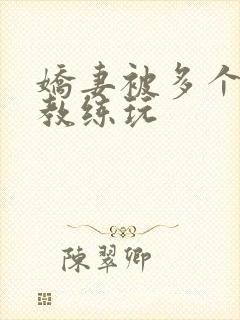 嬌妻被多个
教练玩
陳翠卿